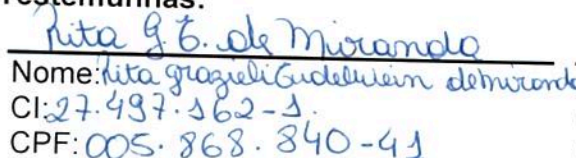 testemunhas:
Rita G. E. de Miranda
Nome: Rita grazieli Eudelwein de miranda
CI: 27.497.162-1.
CPF: 005.868.840-41